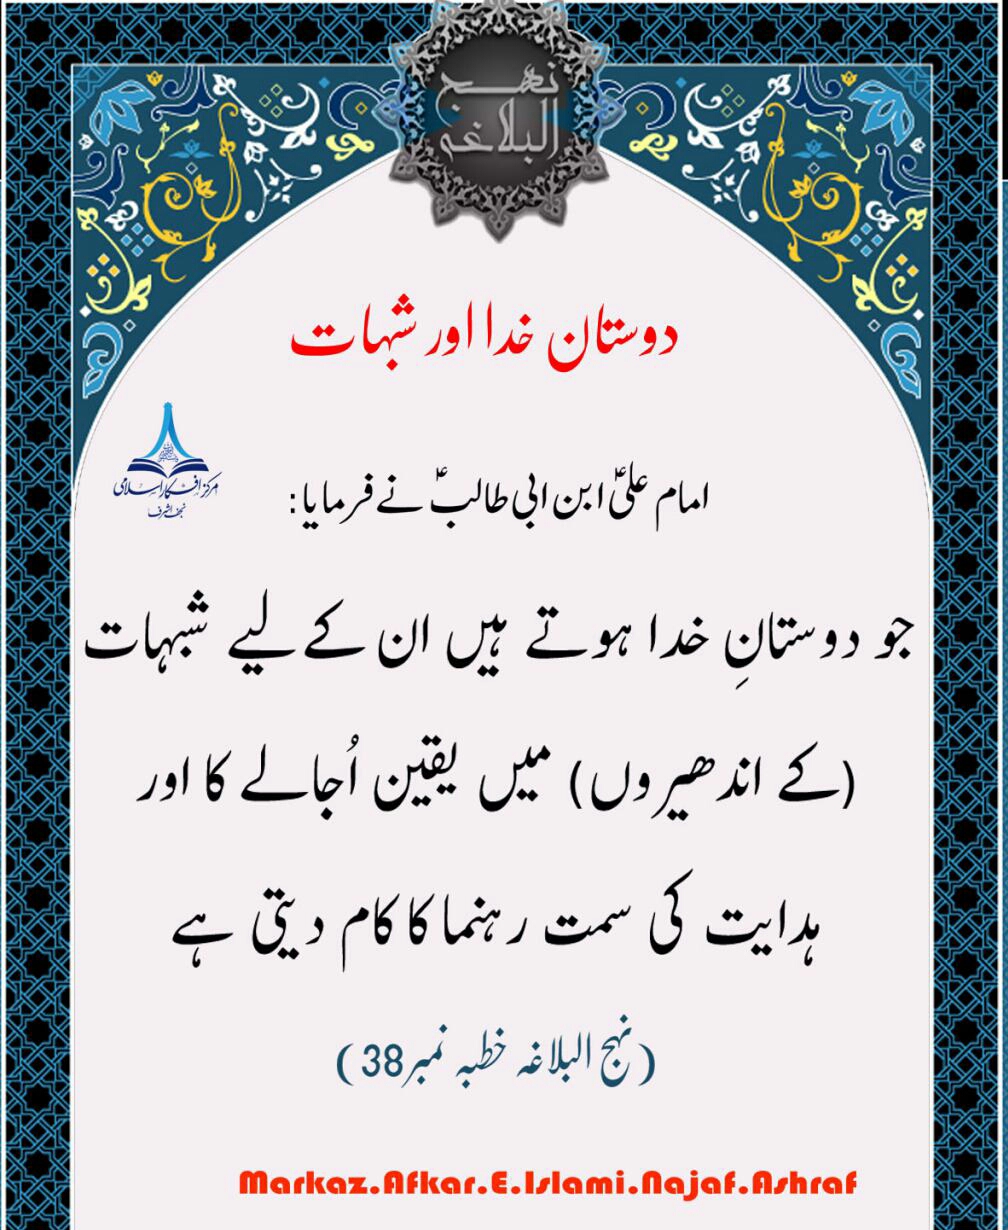 نهج
البلاغه
دوستان خدا اور شبہات
مرکز افکار اسلامی
نجف اشرف
امام علیؑ ابن ابی طالبؑ نے فرمایا:
جو دوستانِ خدا ہوتے ہیں ان کے لیے شبہات
(کے اندھیروں) میں یقین اُجالے کا اور
ہدایت کی سمت رہنما کا کام دیتی ہے
(نہج البلاغہ خطبہ نمبر38)
Markaz.Afkar.E.Islami.Najaf.Ashraf